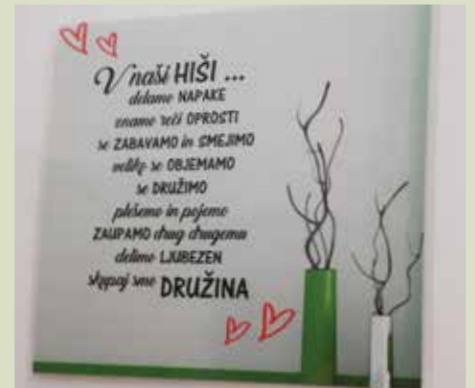 V naši HIŠI ...
delamo NAPAKE
znamo reči OPROSTI
se ZABAVAMO in SMEJIMO
veliko se OBJEMAMO
se DRUŽIMO
plešemo in pojemo
ZAUPAMO drug drugemu
delimo LJUBEZEN
skupaj smo DRUŽINA